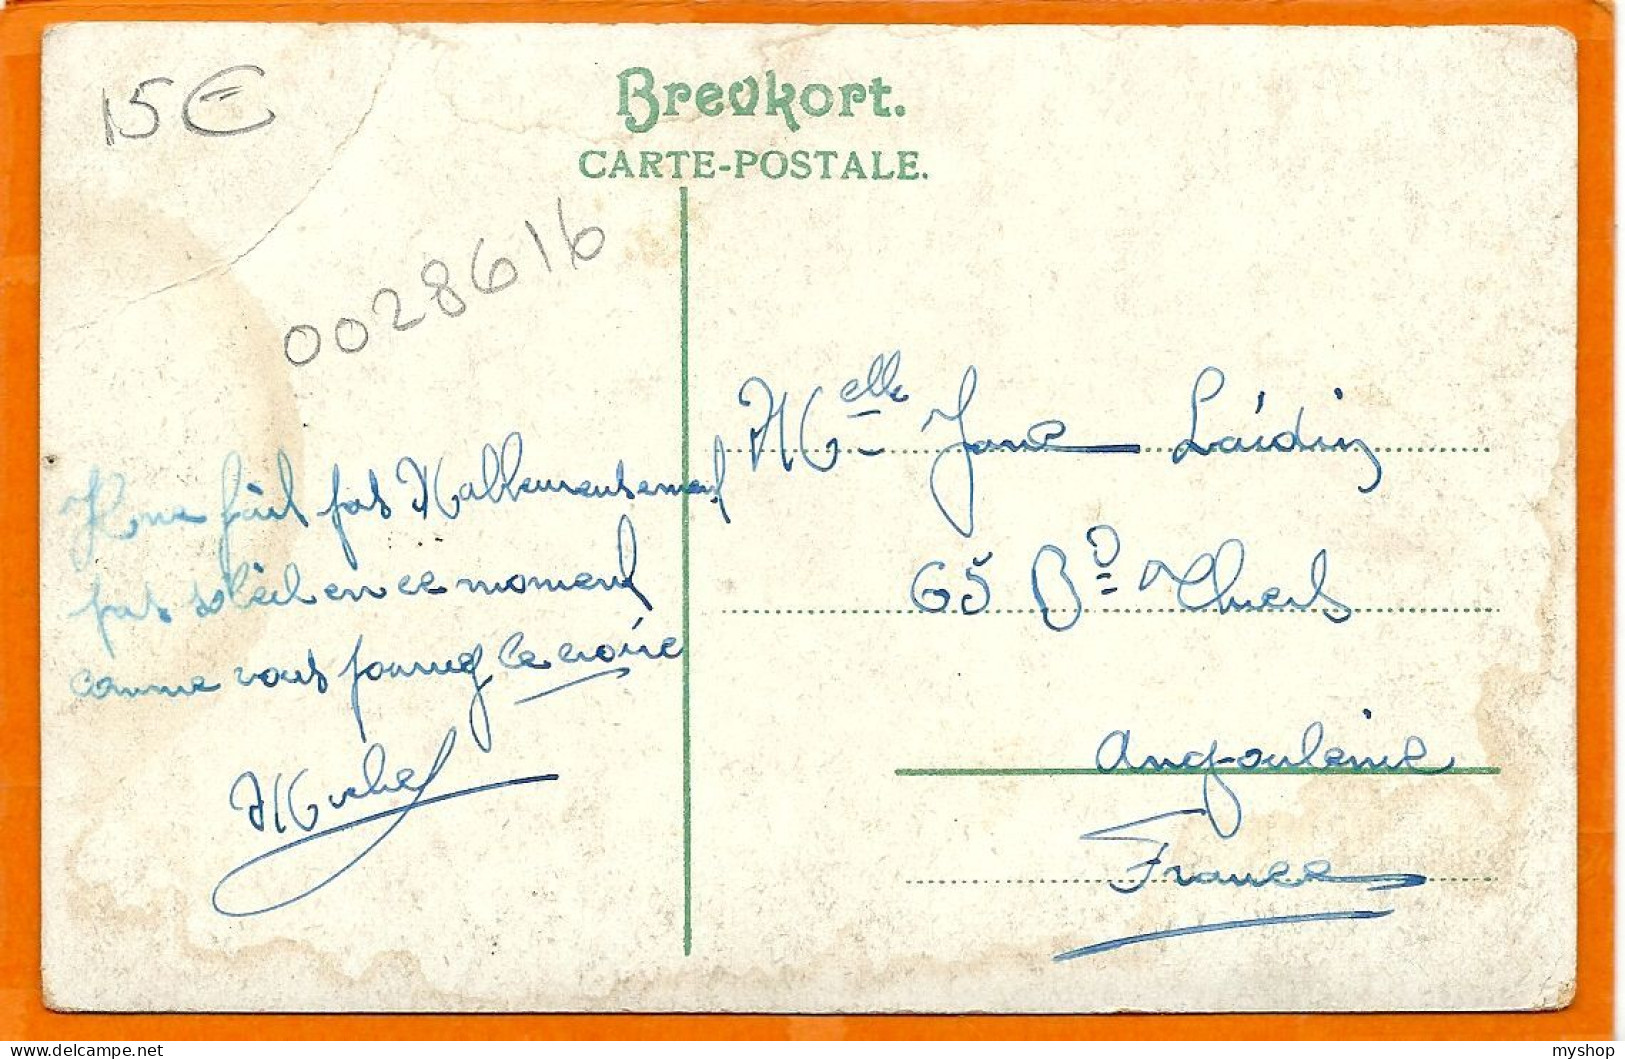 15€
Brevkort.
CARTE-POSTALE.
0028616
Il ne fait pas Malheureusement
pas soleil en ce moment
comme vous pourriez le croire
Michel
Melle Jane
65 Bd Thiers
Angoulème
France
myshop